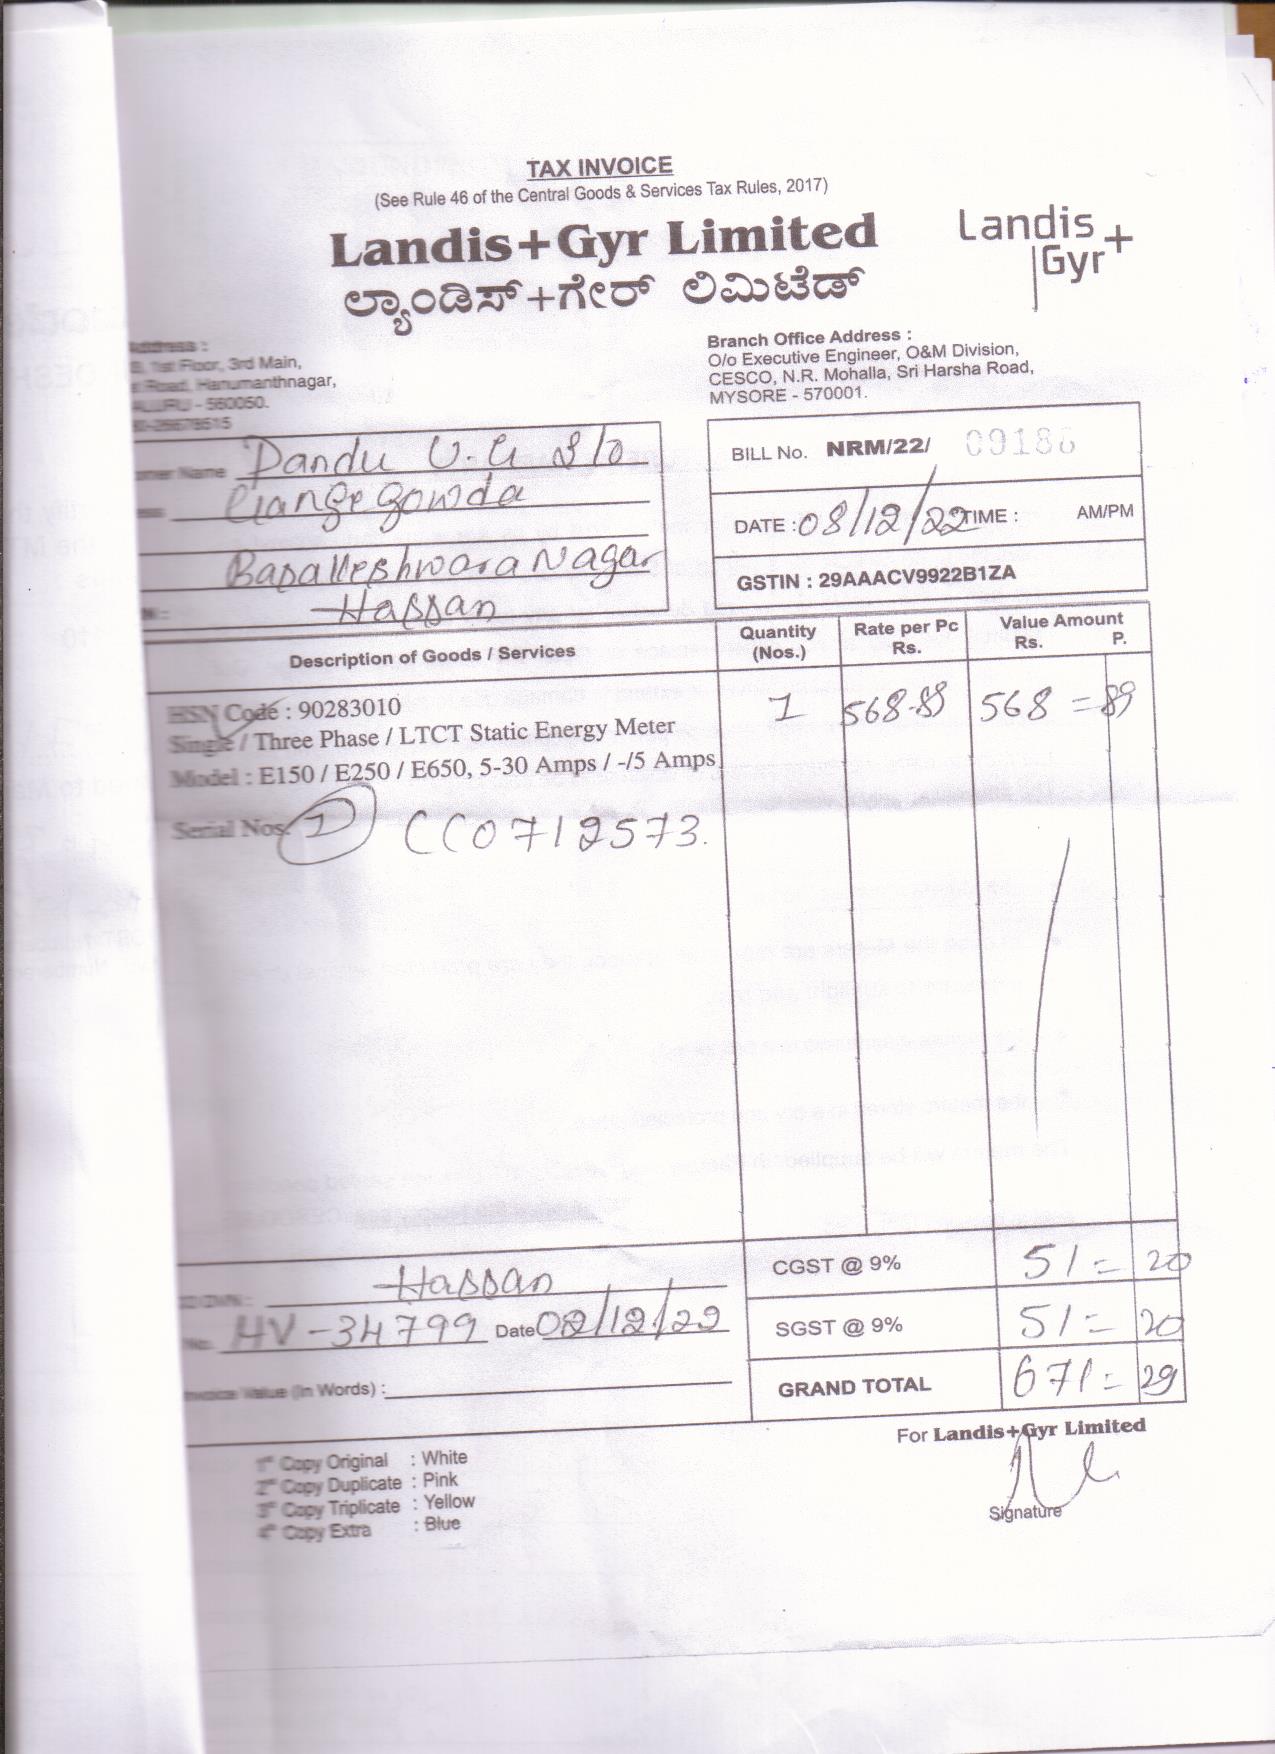 TAX INVOICE
(See Rule 46 of the Central Goods & Services Tax Rules, 2017)
Landis+Gyr Limited
ಲ್ಯಾಂಡಿಸ್+ಗೇರ್ ಲಿಮಿಟೆಡ್
Landis
Gyr+
Address :
1st Floor, 3rd Main,
Road, Hanumanthnagar,
- 560050.
Branch Office Address :
O/o Executive Engineer, O&M Division,
CESCO, N.R. Mohalla, Sri Harsha Road,
MYSORE - 570001.
Name Dandu U.G S/o
Basalleshwara Nagar
Hassan
BILL No. NRM/22/ 09186
DATE : 08/12/22 TIME : AM/PM
GSTIN : 29AAACV9922B1ZA
Description of Goods / Services
Quantity (Nos.)
Rate per Pc Rs.
Value Amount Rs. P.
HSN Code : 90283010
Single / Three Phase / LTCT Static Energy Meter
Model : E150 / E250 / E650, 5-30 Amps / -/5 Amps
1 568.89 568 = 89
Serial Nos. 1 CC0712573.
Hassan
No. HV-34799 Date 08/12/22
Invoice Value (In Words) :
CGST @ 9% 51 = 20
SGST @ 9% 51 = 20
GRAND TOTAL 671 = 29
For Landis+Gyr Limited
Signature
1st Copy Original : White
2nd Copy Duplicate : Pink
3rd Copy Triplicate : Yellow
4th Copy Extra : Blue